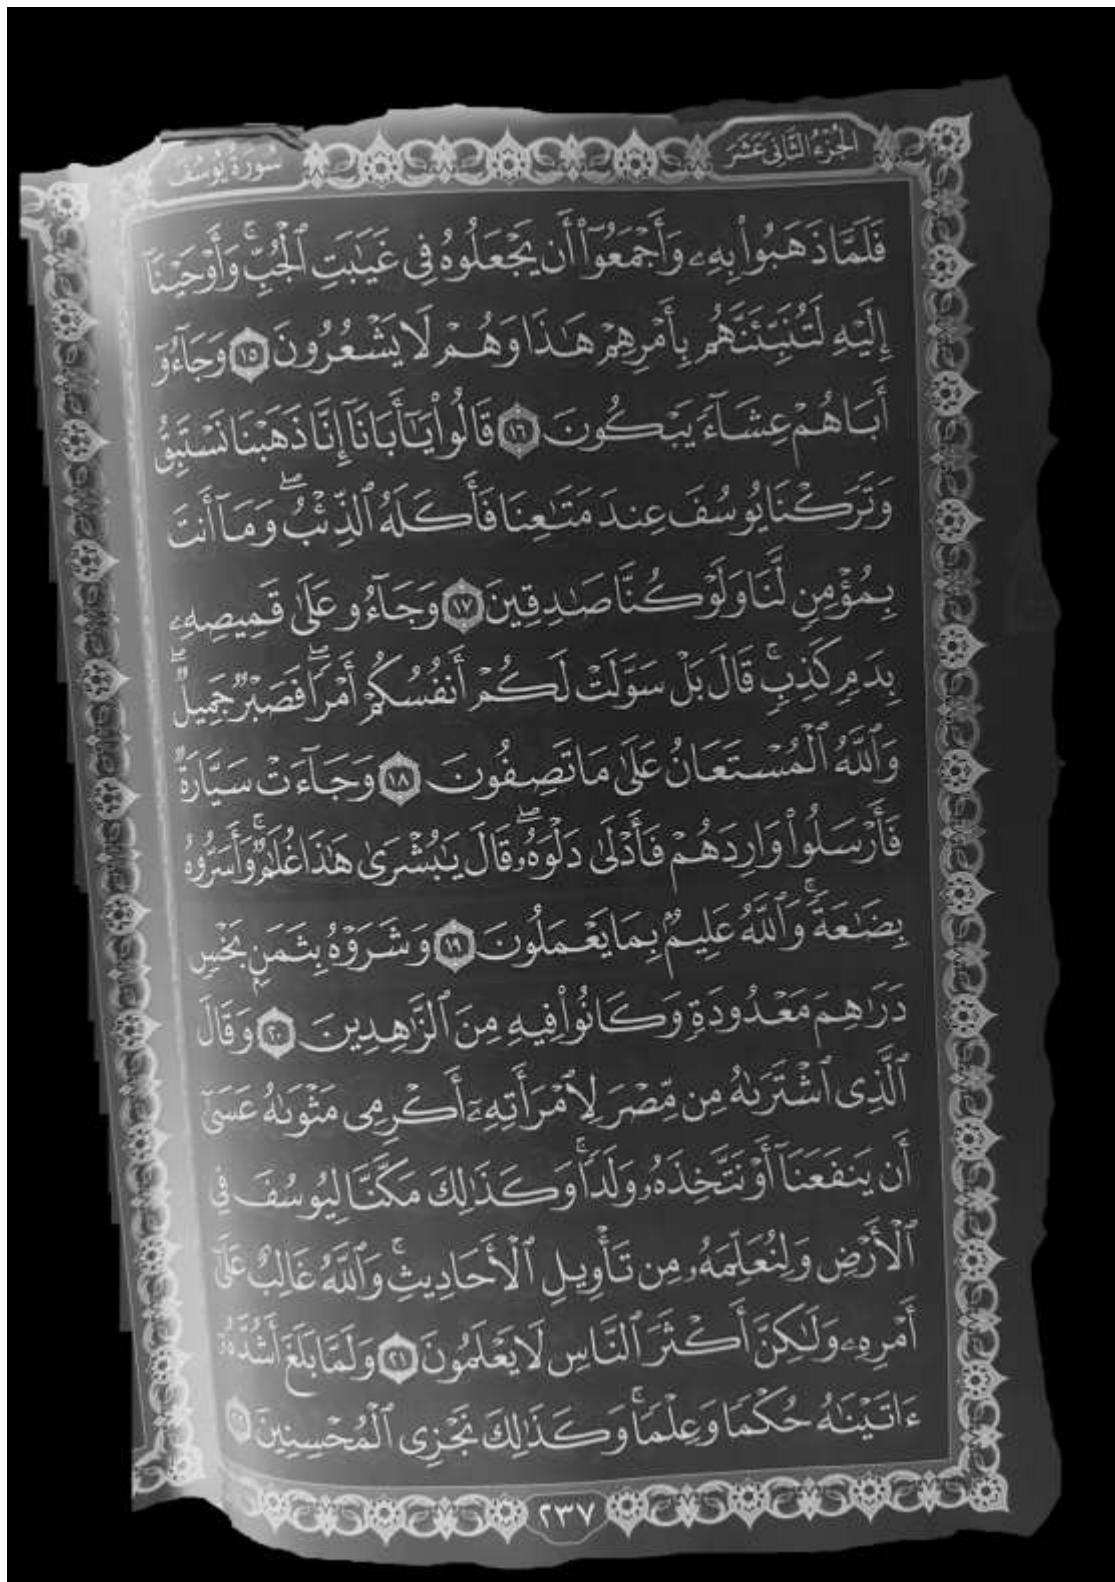 الجُزْءُ الثَّانِي عَشَرَ
سُورَةُ يُوسُفَ
فَلَمَّا ذَهَبُوا۟ بِهِۦ وَأَجْمَعُوٓا۟ أَن يَجْعَلُوهُ فِى غَيَـٰبَتِ ٱلْجُبِّ ۚ وَأَوْحَيْنَآ
إِلَيْهِ لَتُنَبِّئَنَّهُم بِأَمْرِهِمْ هَـٰذَا وَهُمْ لَا يَشْعُرُونَ ١٥ وَجَآءُوٓ
أَبَاهُمْ عِشَآءً يَبْكُونَ ١٦ قَالُوا۟ يَـٰٓأَبَانَآ إِنَّا ذَهَبْنَا نَسْتَبِقُ
وَتَرَكْنَا يُوسُفَ عِندَ مَتَـٰعِنَا فَأَكَلَهُ ٱلذِّئْبُ ۖ وَمَآ أَنتَ
بِمُؤْمِنٍ لَّنَا وَلَوْ كُنَّا صَـٰدِقِينَ ١٧ وَجَآءُو عَلَىٰ قَمِيصِهِۦ
بِدَمٍ كَذِبٍ ۚ قَالَ بَلْ سَوَّلَتْ لَكُمْ أَنفُسُكُمْ أَمْرًا ۖ فَصَبْرٌ جَمِيلٌ ۖ
وَٱللَّهُ ٱلْمُسْتَعَانُ عَلَىٰ مَا تَصِفُونَ ١٨ وَجَآءَتْ سَيَّارَةٌ
فَأَرْسَلُوا۟ وَارِدَهُمْ فَأَدْلَىٰ دَلْوَهُۥ ۖ قَالَ يَـٰبُشْرَىٰ هَـٰذَا غُلَـٰمٌ ۚ وَأَسَرُّوهُ
بِضَـٰعَةً ۚ وَٱللَّهُ عَلِيمٌۢ بِمَا يَعْمَلُونَ ١٩ وَشَرَوْهُ بِثَمَنٍۭ بَخْسٍ
دَرَٰهِمَ مَعْدُودَةٍ وَكَانُوا۟ فِيهِ مِنَ ٱلزَّٰهِدِينَ ٢٠ وَقَالَ
ٱلَّذِى ٱشْتَرَىٰهُ مِن مِّصْرَ لِٱمْرَأَتِهِۦٓ أَكْرِمِى مَثْوَىٰهُ عَسَىٰٓ
أَن يَنفَعَنَآ أَوْ نَتَّخِذَهُۥ وَلَدًا ۚ وَكَذَٰلِكَ مَكَّنَّا لِيُوسُفَ فِى
ٱلْأَرْضِ وَلِنُعَلِّمَهُۥ مِن تَأْوِيلِ ٱلْأَحَادِيثِ ۚ وَٱللَّهُ غَالِبٌ عَلَىٰٓ
أَمْرِهِۦ وَلَـٰكِنَّ أَكْثَرَ ٱلنَّاسِ لَا يَعْلَمُونَ ٢١ وَلَمَّا بَلَغَ أَشُدَّهُۥٓ
ءَاتَيْنَـٰهُ حُكْمًا وَعِلْمًا ۚ وَكَذَٰلِكَ نَجْزِى ٱلْمُحْسِنِينَ ٢٢
٢٣٧